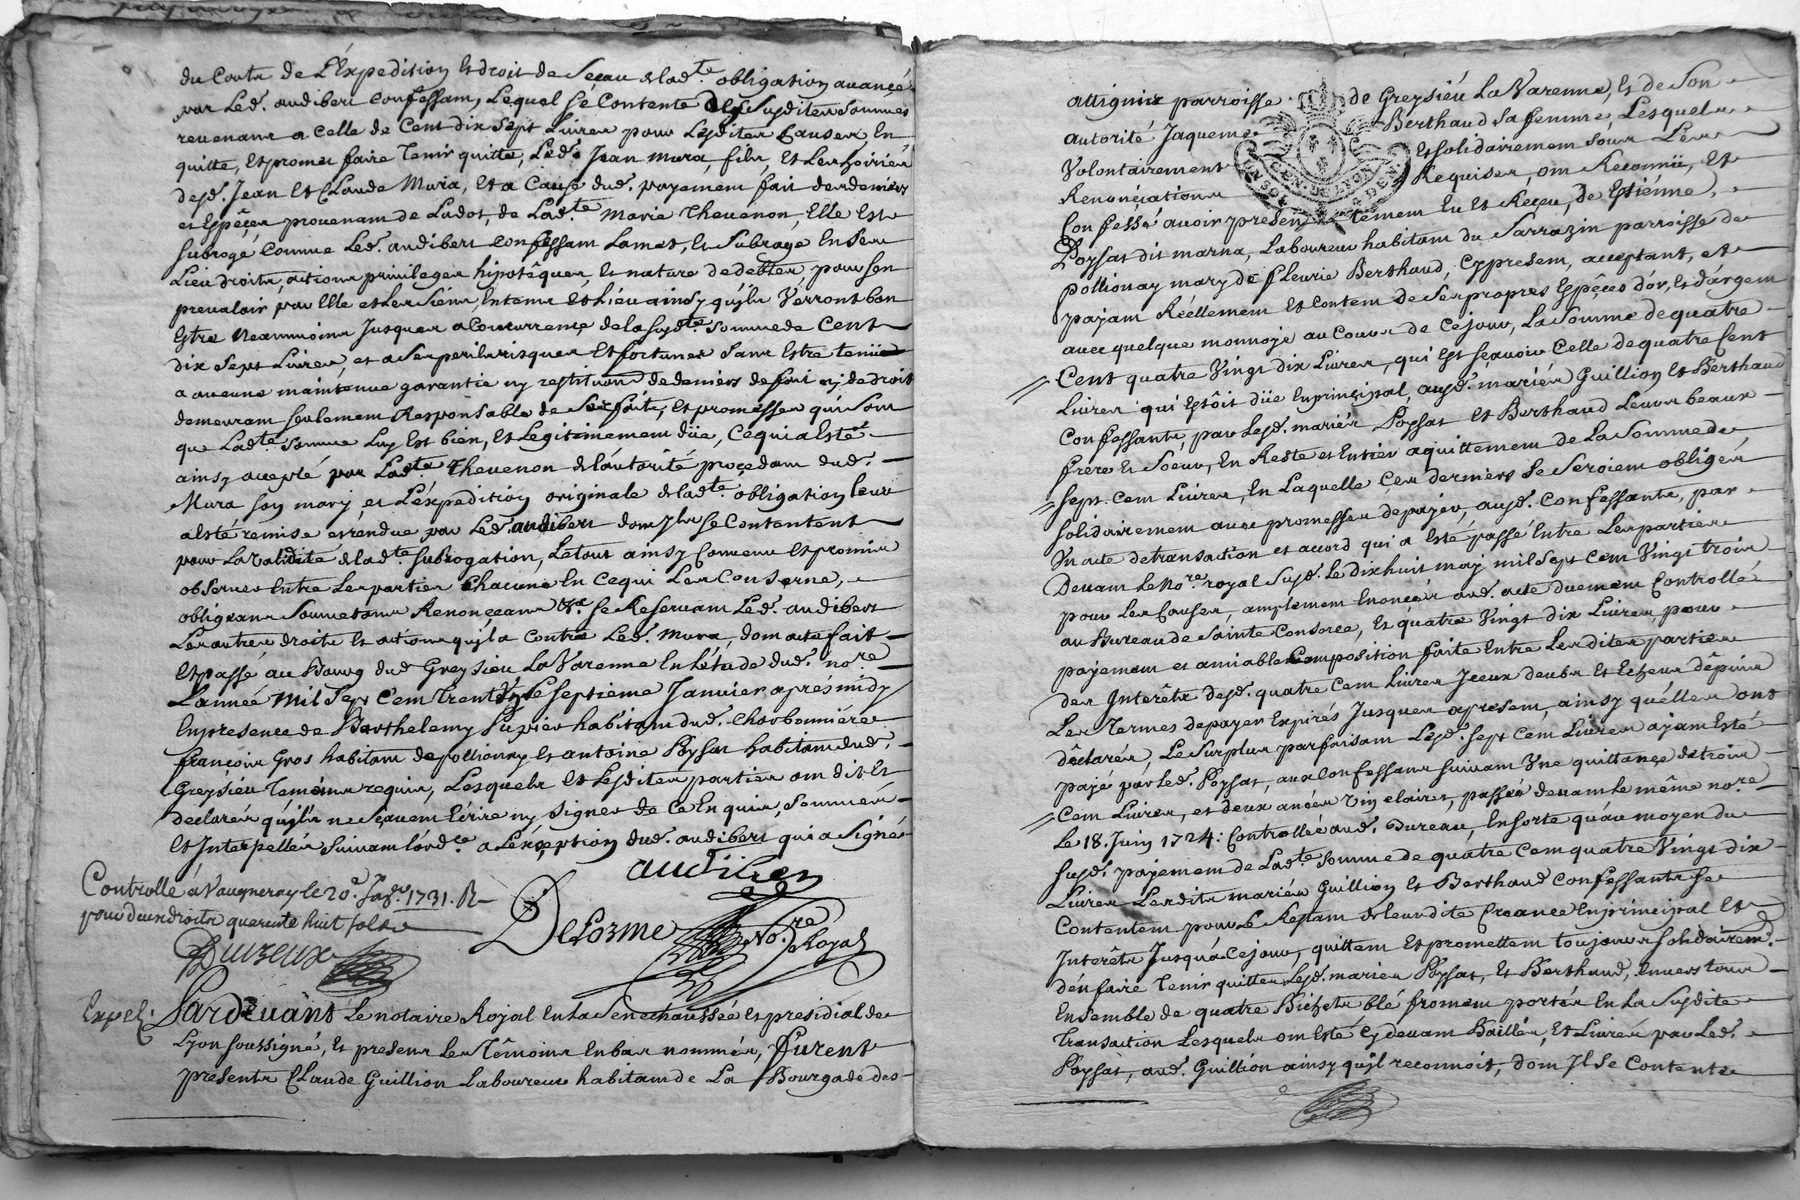 du Contr de L'Expedition Et droit de Sceau de lad.te obligation avancé
par Led. audibert confessant, Lequel se Contente desd Susdites Sommes
revenant a celle de Cent dix sept Livres pour Lesdites Causes En
quitte, Et promet faire Tenir quitte, Led. Jean mura, fils, Et Les hoiries
desd. Jean Et Claude Mura, Et a Cause dud. payement fait des deniers
et Espêces provenant de Ladot, de Lad.te Marie Thevenon, Elle Est
Subrogé Comme Led. audibert confessant Lamet, Et Subroge En Ses
Lieu droits, actions privileges hipotêques, Et nature de debtes, pour s'en
prevaloir par Elle et Les Siens, En tems Et Lieu ainsy qu'ils Verront bon
Estre Neanmoins Jusques a Concurrence de la Susd.te Somme de Cent
dix Sept Livres, et a Ses perils risques Et fortunes Sans Estre tenüe
a aucune maintenue garantie ny restitution de deniers de fait ny de droit
demeurant seulement Responsable de Ses faits, Et promesses qui Sont
que Lad.te Somme Luy Est bien, Et Legitimement düe, Ce qui a Esté
ainsy accepté par Lad.te Thevenon de l'autorité procedant dud.
Mura son mary, et L'expedition originale de lad.te obligation leur
a Esté remise et rendue par Led. audibert dont Ils Se Contentent
pour La Validité de lad.te subrogation, Le tout ainsy Convenu Et promis
observer Entre Les parties Chacune En Ce qui Les Conserne,
obligeans Soumetans Renonceans &c. Se Reservant Led. audibert
Les autres droits Et actions qu'il a Contre Led. Mura, dont acte fait
Et passé au Bourg dud. Greysieu La Varenne En L'étude dud. no.re
L'année Mil Sept Cent Trente Le Septieme Janvier aprés midy
En presence de Barthelemy habitant dud. Charbonniéres
françois Gros habitant de pollionay Et antoine Poysat habitant dud.
Greysieu Temoins requis, Lesquels Et Lesdites parties ont dit Et
declarés qu'ils ne Sçavent Ecrire ny Signer de Ce Enquis, Sommés
Et Interpellés Suivant l'ord.ce a L'exception dud. audibert qui a Signé
audibert
Controllé à Vaugneray le 20.e Janv. 1731. R
pour deux droits quarante huit sols
Delorme No.re Royal
Expedi.
Pardevant Le notaire Royal En La Senechaussée Et presidial de
Lyon soussigné, Et presens Les Témoins En bas nommés, furent
presents Claude Guillion Laboureur habitant de La Bourgade des
attignies parroisse de Greysieu La Varenne, Et de Son
autorité Jaqueme Berthaud Sa femme, Lesquels
Volontairement Et Solidairement Sous Les
Renonciations Requises, ont Reconnü, Et
Confessé avoir presentement Eu Et Reçeu, de Estiénne,
Poysat dit marna, Laboureur habitant du Sarrazin parroisse de
pollionay mary de fleurie Berthaud, Cy present, acceptant, et
payant Réellement Et Content de Ses propres Espêces d'or, Et d'argent
avec quelque monnoye au Cours de Ce jour, La Somme de quatre
Cent quatre Vingt dix Livres, qui Est sçavoir Celle de quatre Cent
Livres qui Estoit düe En principal, ausd. mariés Guillion Et Berthaud
Confessants, par Lesd. mariés Poysat Et Berthaud Leurs beaux
frere Et Soeur, En Reste et Entier aquittement de La Somme de
Sept Cent Livres, En Laquelle Ces derniers Se Seroient obligés
Solidairement avec promesses de payer, ausd. Confessants, par
Un acte de transaction et accord qui a Esté passé Entre Les parties
Devant Le No.re royal Susd. Le dix huit may mil Sept Cent Vingt trois
pour Les Causes, amplement Enoncés aud. acte duement Controllé
au Bureau de Sainte Consorce, Et quatre Vingt dix Livres, pour
payement et amiable Composition faite Entre Lesdites parties
des Interêts desd. quatre Cent Livres Iceux deubs Et Echeus dêpuis
Les Termes de payer Expirés Jusques a present, ainsy qu'elles ont
dêclarés, Le Surplus parfaisant Lesd. sept Cent Livres ayant Esté
payé par Led. Poysat, aux Confessans suivant Une quittance de trois
Cent Livres, et deux anées d'Interets, passée devant Le même no.re
Le 18. Juin 1724: Controllée aud. Bureau, En sorte qu'au moyen du
Susd. payement de Lad.te Somme de quatre Cent quatre Vingt dix
Livres Lesdits mariés Guillion Et Berthaud Confessants Se
Contentent pour Le Restant de leurdite Creance En principal Et
Interêts Jusqu'a Ce jour, quittent Et promettent toujours Solidairem.t
d'en faire Tenir quittes Lesd. mariés Poysat, Et Berthaud, Envers tous
Ensemble de quatre Bichets blé froment portés En La Susdite
Transaction Lesquels ont Esté Cy devant Baillés, Et Livrés par Led.
Poysat, aud. Guillion ainsy qu'il reconnoit, dont Il Se Contente